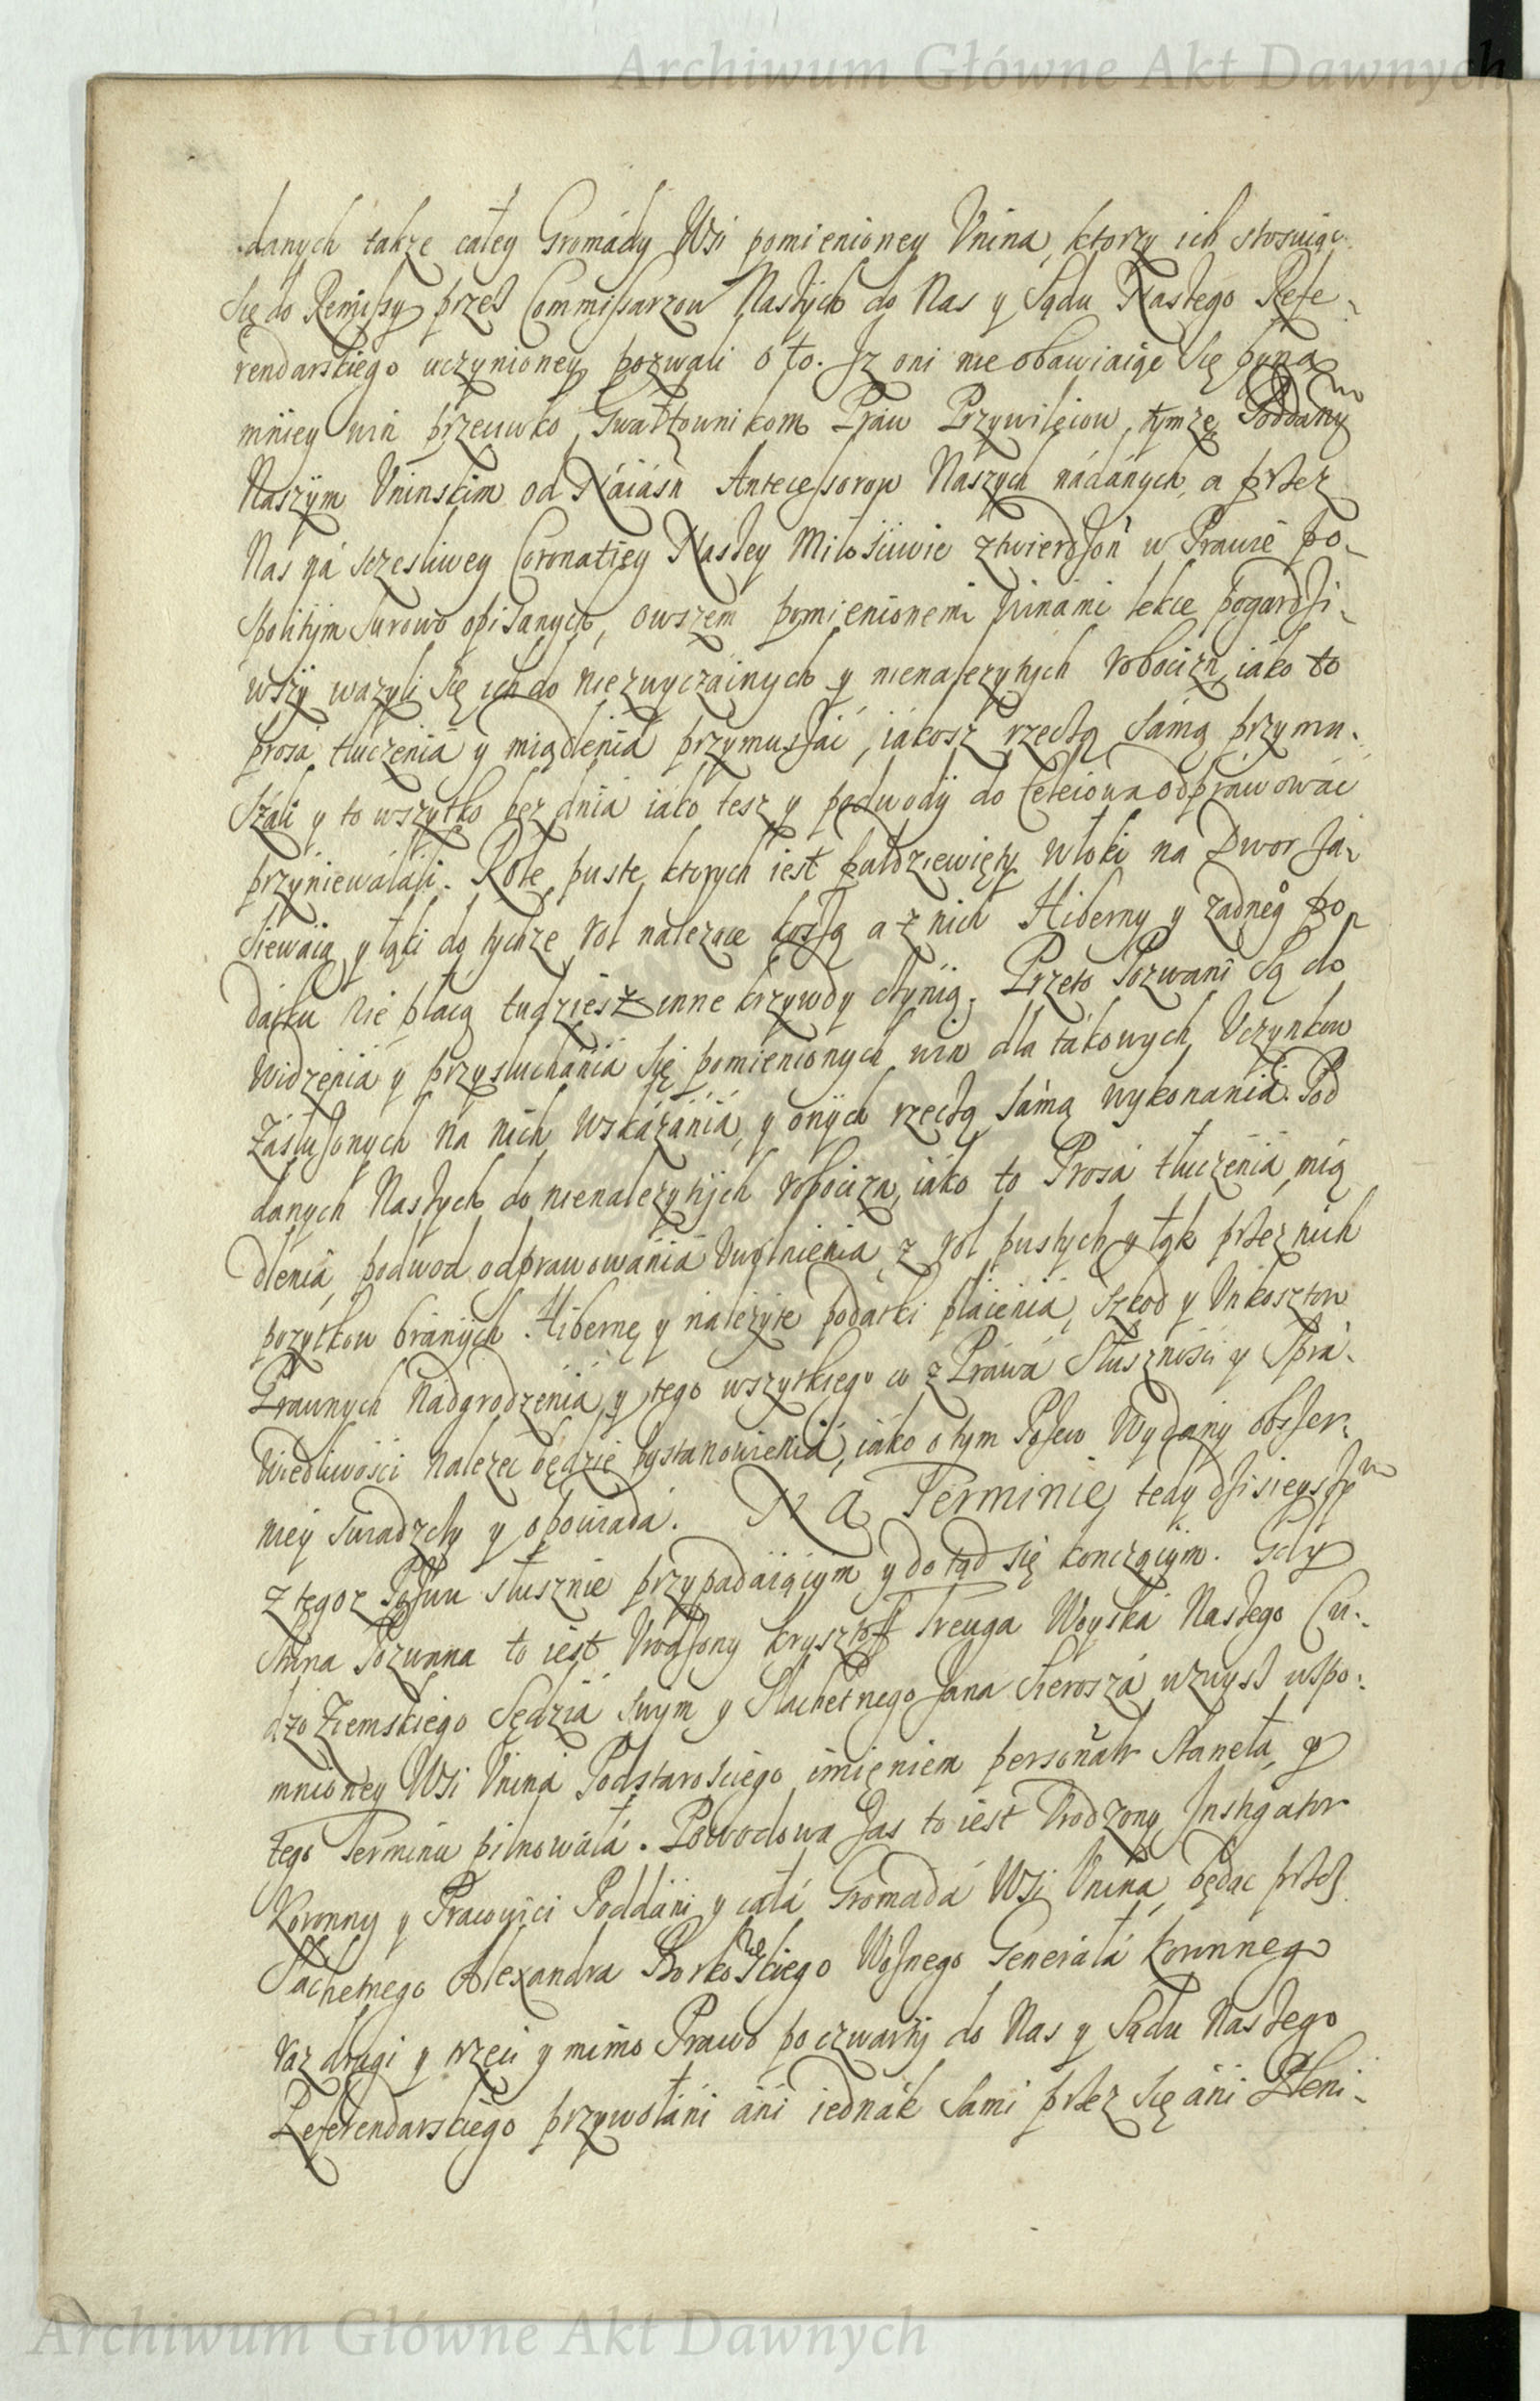 Archiwum Główne Akt Dawnych
danych także całey Gromády Wsi pomienioney Vnina, ktorzy ich stosuiąc
Się do Remissy przez Commissarzow Naszych do Nas y Sądu Naszego Refe-
rendarskiego uczynioney pozwali o to. Jz oni nie obawiaiąc Się byna
mniey win przeciwko Gwałtownikom Praw Przywileiow, tymże Poddanym
Naszym Vninskim od Náiásn Antecessorow Nászych nádánych, a przez
Nas ná sczesliwey Coronatiey Naszey Miłościwie ztwierdzon w Prawie po-
spolitym surowo opisanych, owszem pomienionemi winami lekce pogardzi-
wszy wazyli Się ich do niezwyczainych y nienalezytych robocizn, iáko to
prosa tłuczenia y miądlenia przymuszáć, iakosz rzeczą sámą przymu-
száli y to wszytko bez dnia iáko tesz y podwody do Celeiowa odprawowáć
przyniewaláli. Role puste ktorych iest pułdziewięty włoki na Dwor za-
siewaią, y łąki do tychze rol należące koszą a z nich Hiberny y zadneg° po-
datku nie płacą tudziesz inne krzywdy czynią. Przeto Pozwani Są do
widzenia y przysłuchania Się pomienionych win dla tákowych Vczynkow
Zásłużonych ná nich Wskázánia, y onych rzeczą sámą wykonania. Pod
danych Naszych do nienalezytych robocizn, iáko to Prosá tłuczenia, mią
dlenia, podwod odprawowánia Vwolnienia, z rol pustych y łąk przez nich
pozytkow branych Hibernę y należyte podatki płacenia, szkod y Vnkosztow
Prawnych Nadgrodzenia, y tego wszytkiego co z Práwá Słuszności y Sprá-
wiedliwości należeć będzie postanowienia, iáko o tym Pozew Wydany obszer-
niey świadczy y opowiada. Na Terminie tedy dzisieyszym
z tegoz Pozwu słusznie przypadáiącym y do tąd się konczącym. Gdy
Strona Pozwana to iest Vrodzony Krysztoff Treuga Woyská Naszego Cu-
dzoziemskiego Sędzia swym y Slachetnego Jana Sierosza wzwysz wspo-
mnioney Wsi Vnina Podstarosciego imięniem personalr Staneła, y
tego Terminu pilnowáłá. Powodowa zas to iest Vrodzony Instigator
Koronny y Pracowici Poddáni y cáłá Gromadá Wsi Vnina, będąc przez
Slachetnego Alexandra Borkowskiego Woznego Generałá Koronnego
raz drugi y trzeci y mimo Prawo po czwarty do Nas y Sądu Naszego
Referendarskiego przywołáni áni iednák Sami przez Się áni Pleni-
Archiwum Główne Akt Dawnych